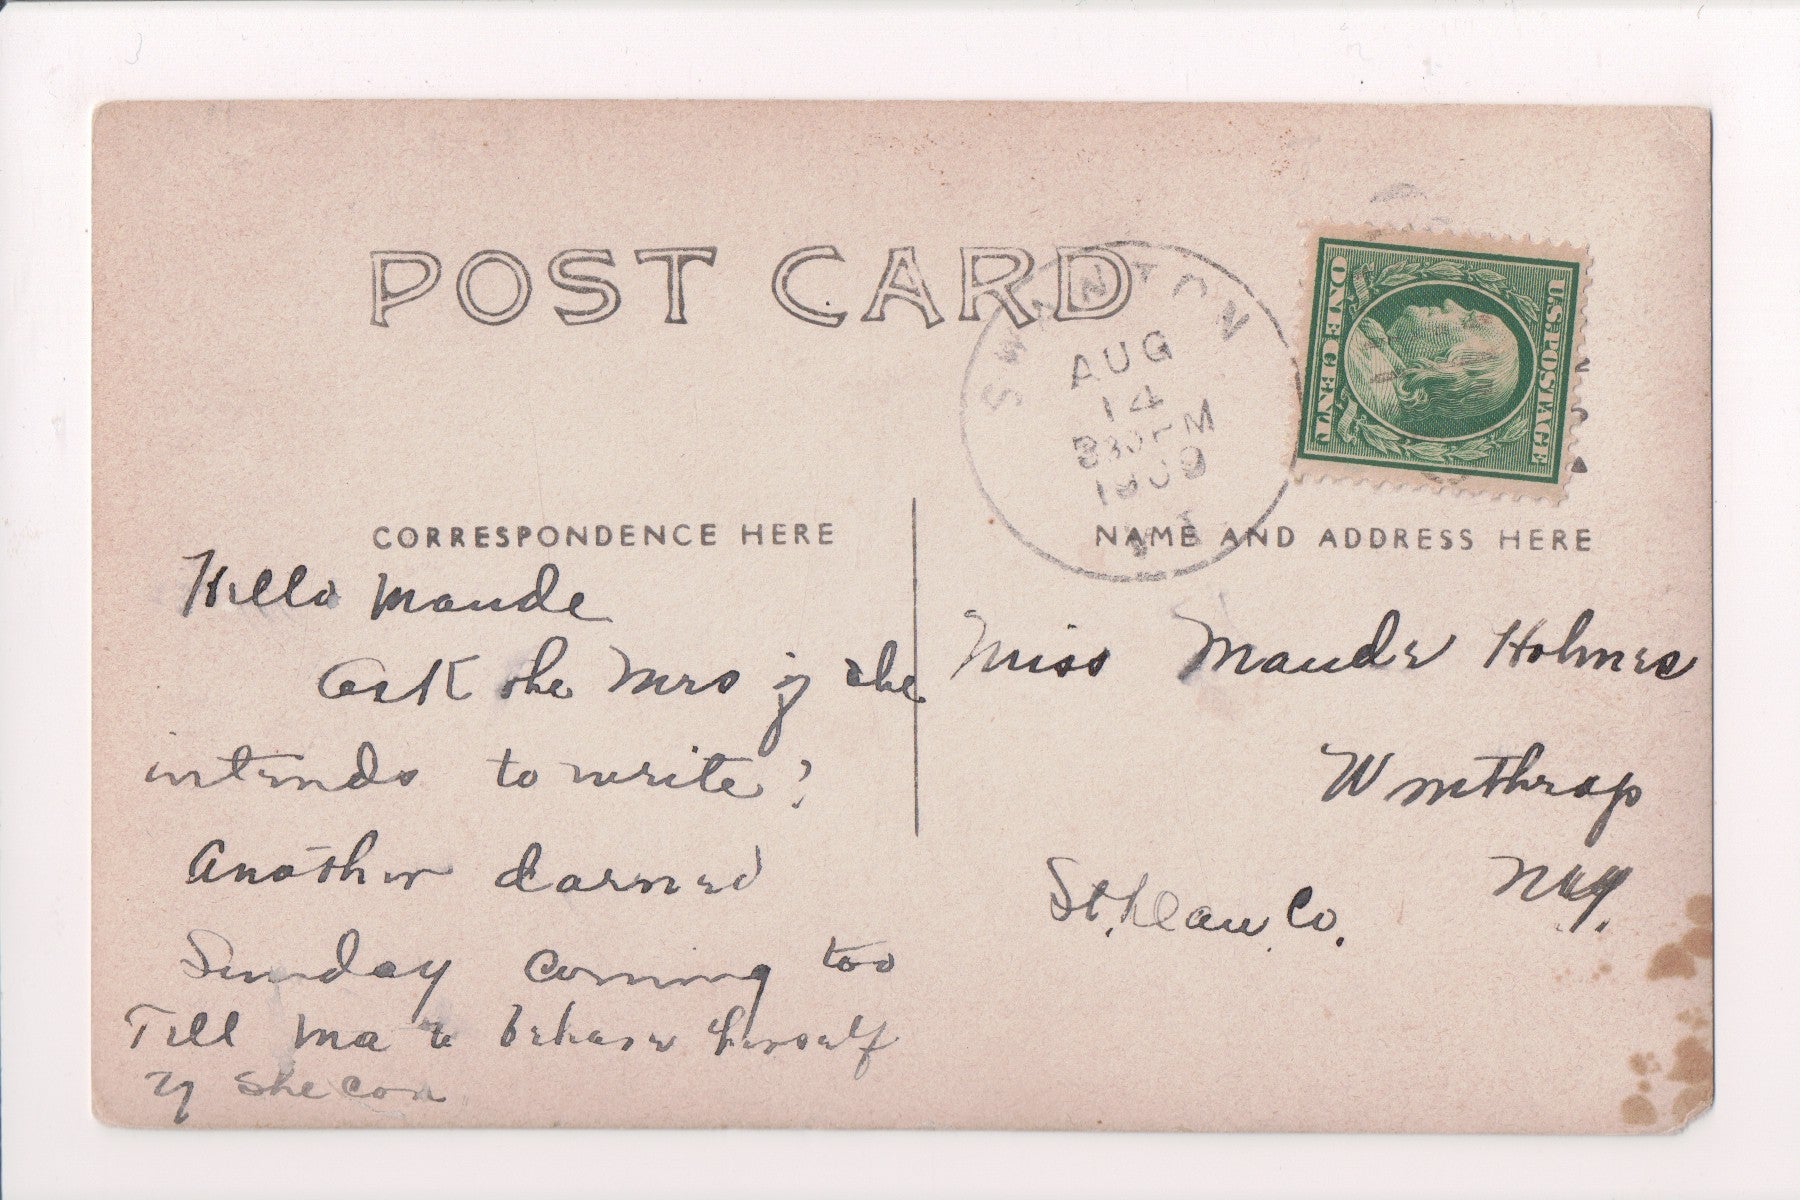 POST CARD
SWANTON
AUG
14
330 PM
1909
VT
U.S. POSTAGE
ONE CENT
CORRESPONDENCE HERE
NAME AND ADDRESS HERE
Hello Maude
Ask the Mrs if she
intends to write?
Another darned
Sunday coming too
Tell Ma to behave herself
if she can
Miss Maude Holmes
Winthrop
N.Y.
St. Law. Co.